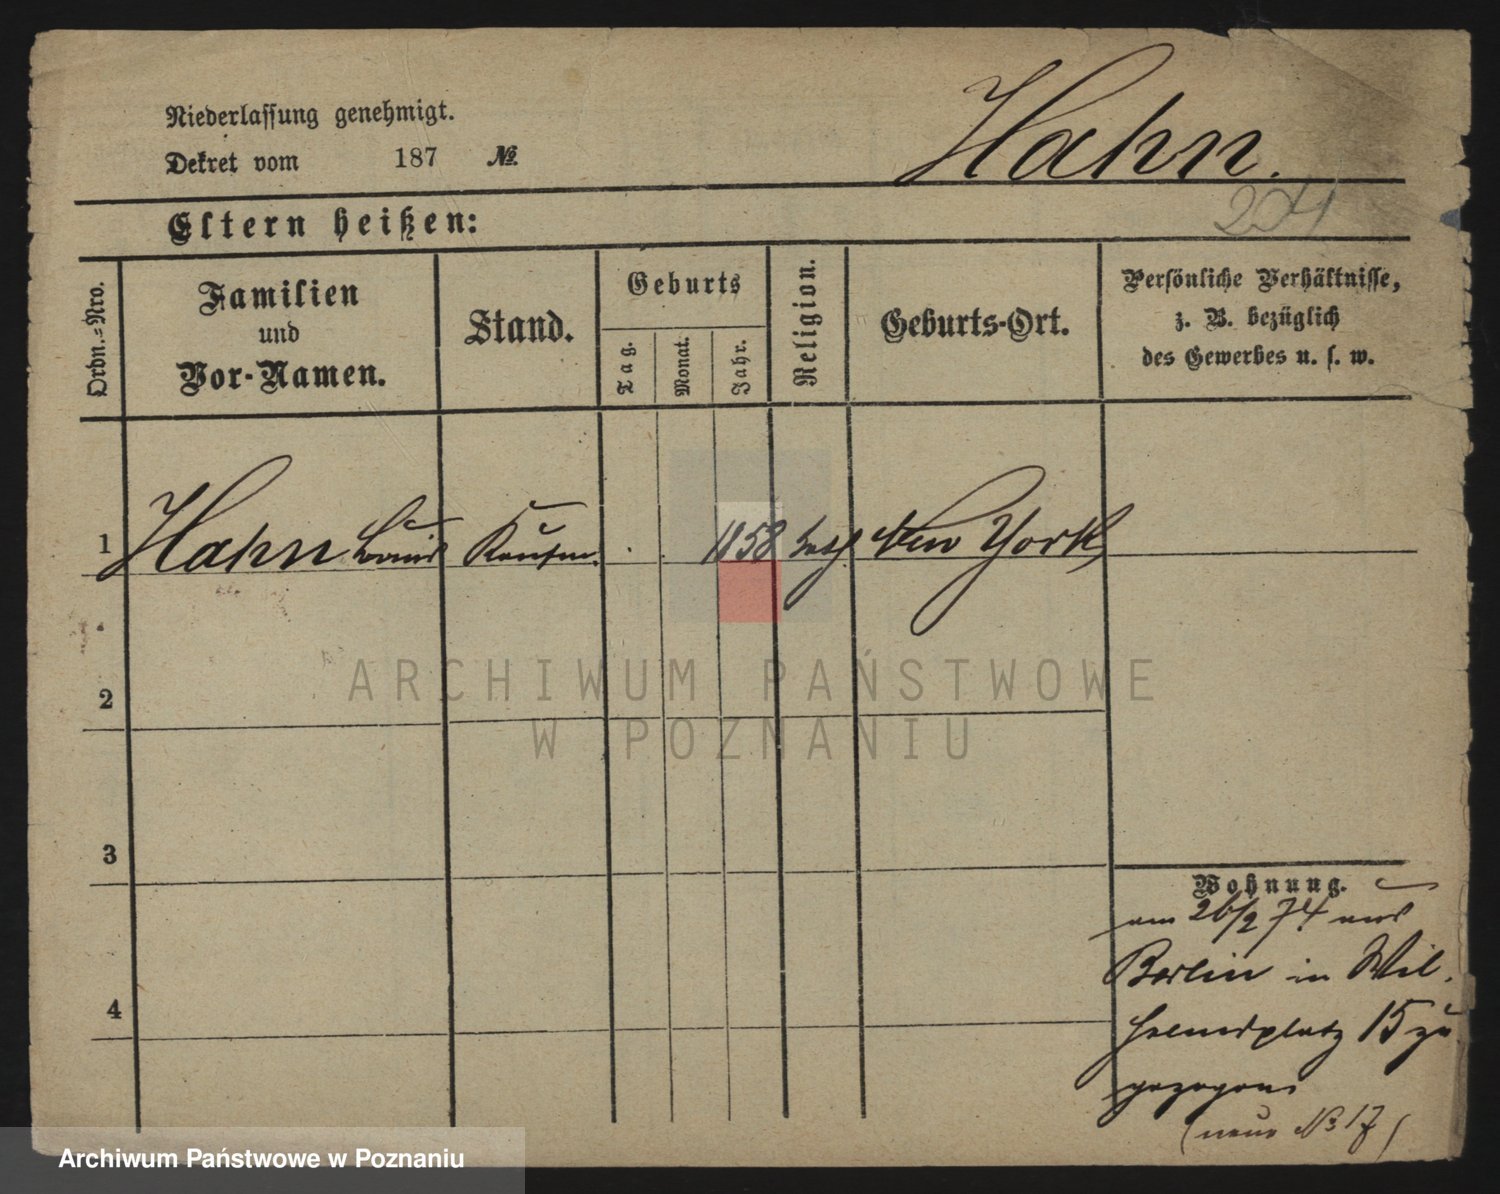 Niederlassung genehmigt.
Hahn.
Dekret vom 187 №
204
Eltern heißen:
Ordn.=Nro.
Familien
und
Vor-Namen.
Stand.
Geburts
Tag.
Monat.
Jahr.
Religion.
Geburts-Ort.
Persönliche Verhältnisse,
z. B. bezüglich
des Gewerbes u. s. w.
1 Hahn Louis Kaufm. 1858 New York
2
3
4
ARCHIWUM PAŃSTWOWE
W POZNANIU
Wohnung.
am 26/2 74 aus
Berlin in Wil-
helmsplatz 15 zu
gezogen
(neue № 17)
Archiwum Państwowe w Poznaniu